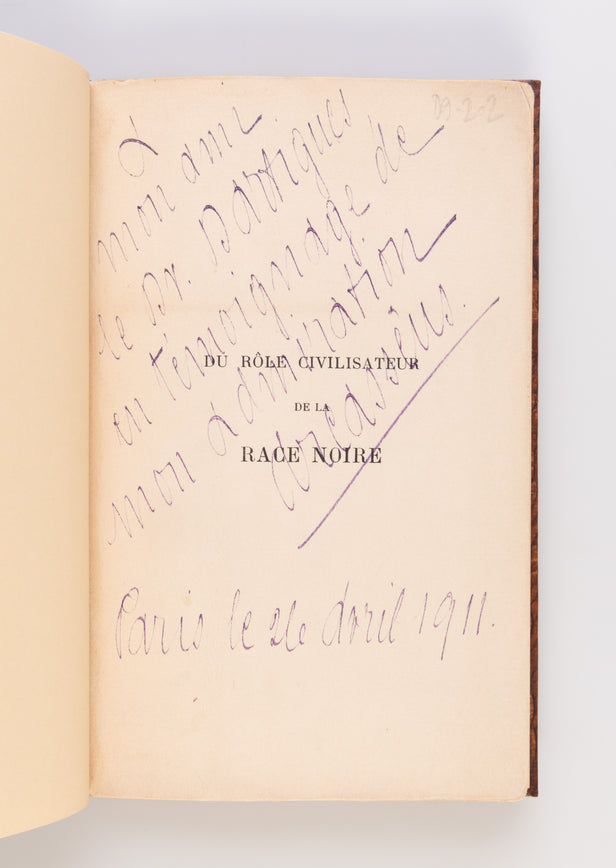 A
mon ami
le Dr. Dartigues
en témoignage de
mon admiration
DU RÔLE CIVILISATEUR
DE LA
RACE NOIRE
Paris le 26 Avril 1911.